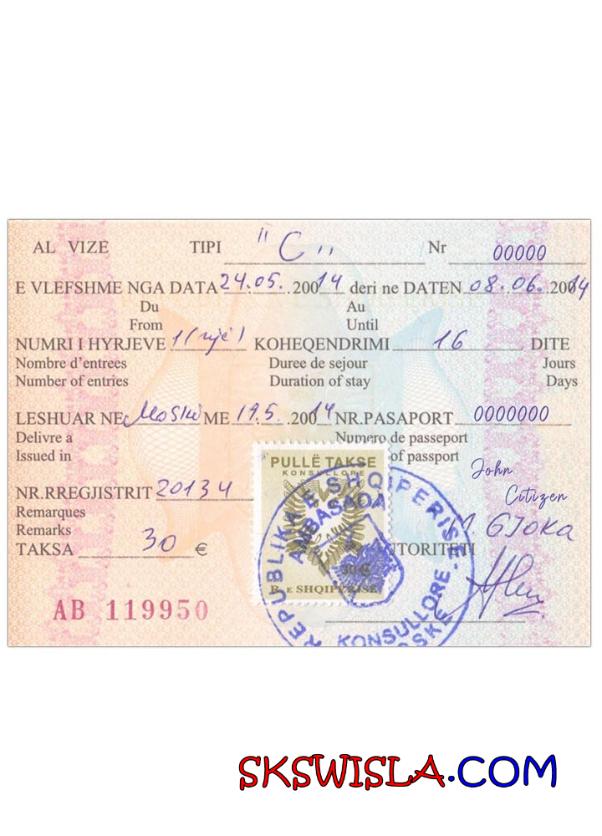 AL VIZE TIPI "C" Nr 00000
E VLEFSHME NGA DATA 24.05.2014 deri ne DATEN 08.06.2014
Du Au
From Until
NUMRI I HYRJEVE 1 (një) KOHEQENDRIMI 16 DITE
Nombre d'entrees Duree de sejour Jours
Number of entries Duration of stay Days
LESHUAR NE Moskë ME 19.5.2014 NR.PASAPORT 0000000
Delivre a Numero de passeport
Issued in of passport
John
Citizen
NR.RREGJISTRIT 20134
Remarques
Remarks
M GJOKA
TAKSA 30 € AUTORITETI
AB 119950
PULLË TAKSE
KONSULLORE
R. E SHQIPERISE
REPUBLIKA E SHQIPERISE
AMBASADA
KONSULLORE
SKSWISLA.COM